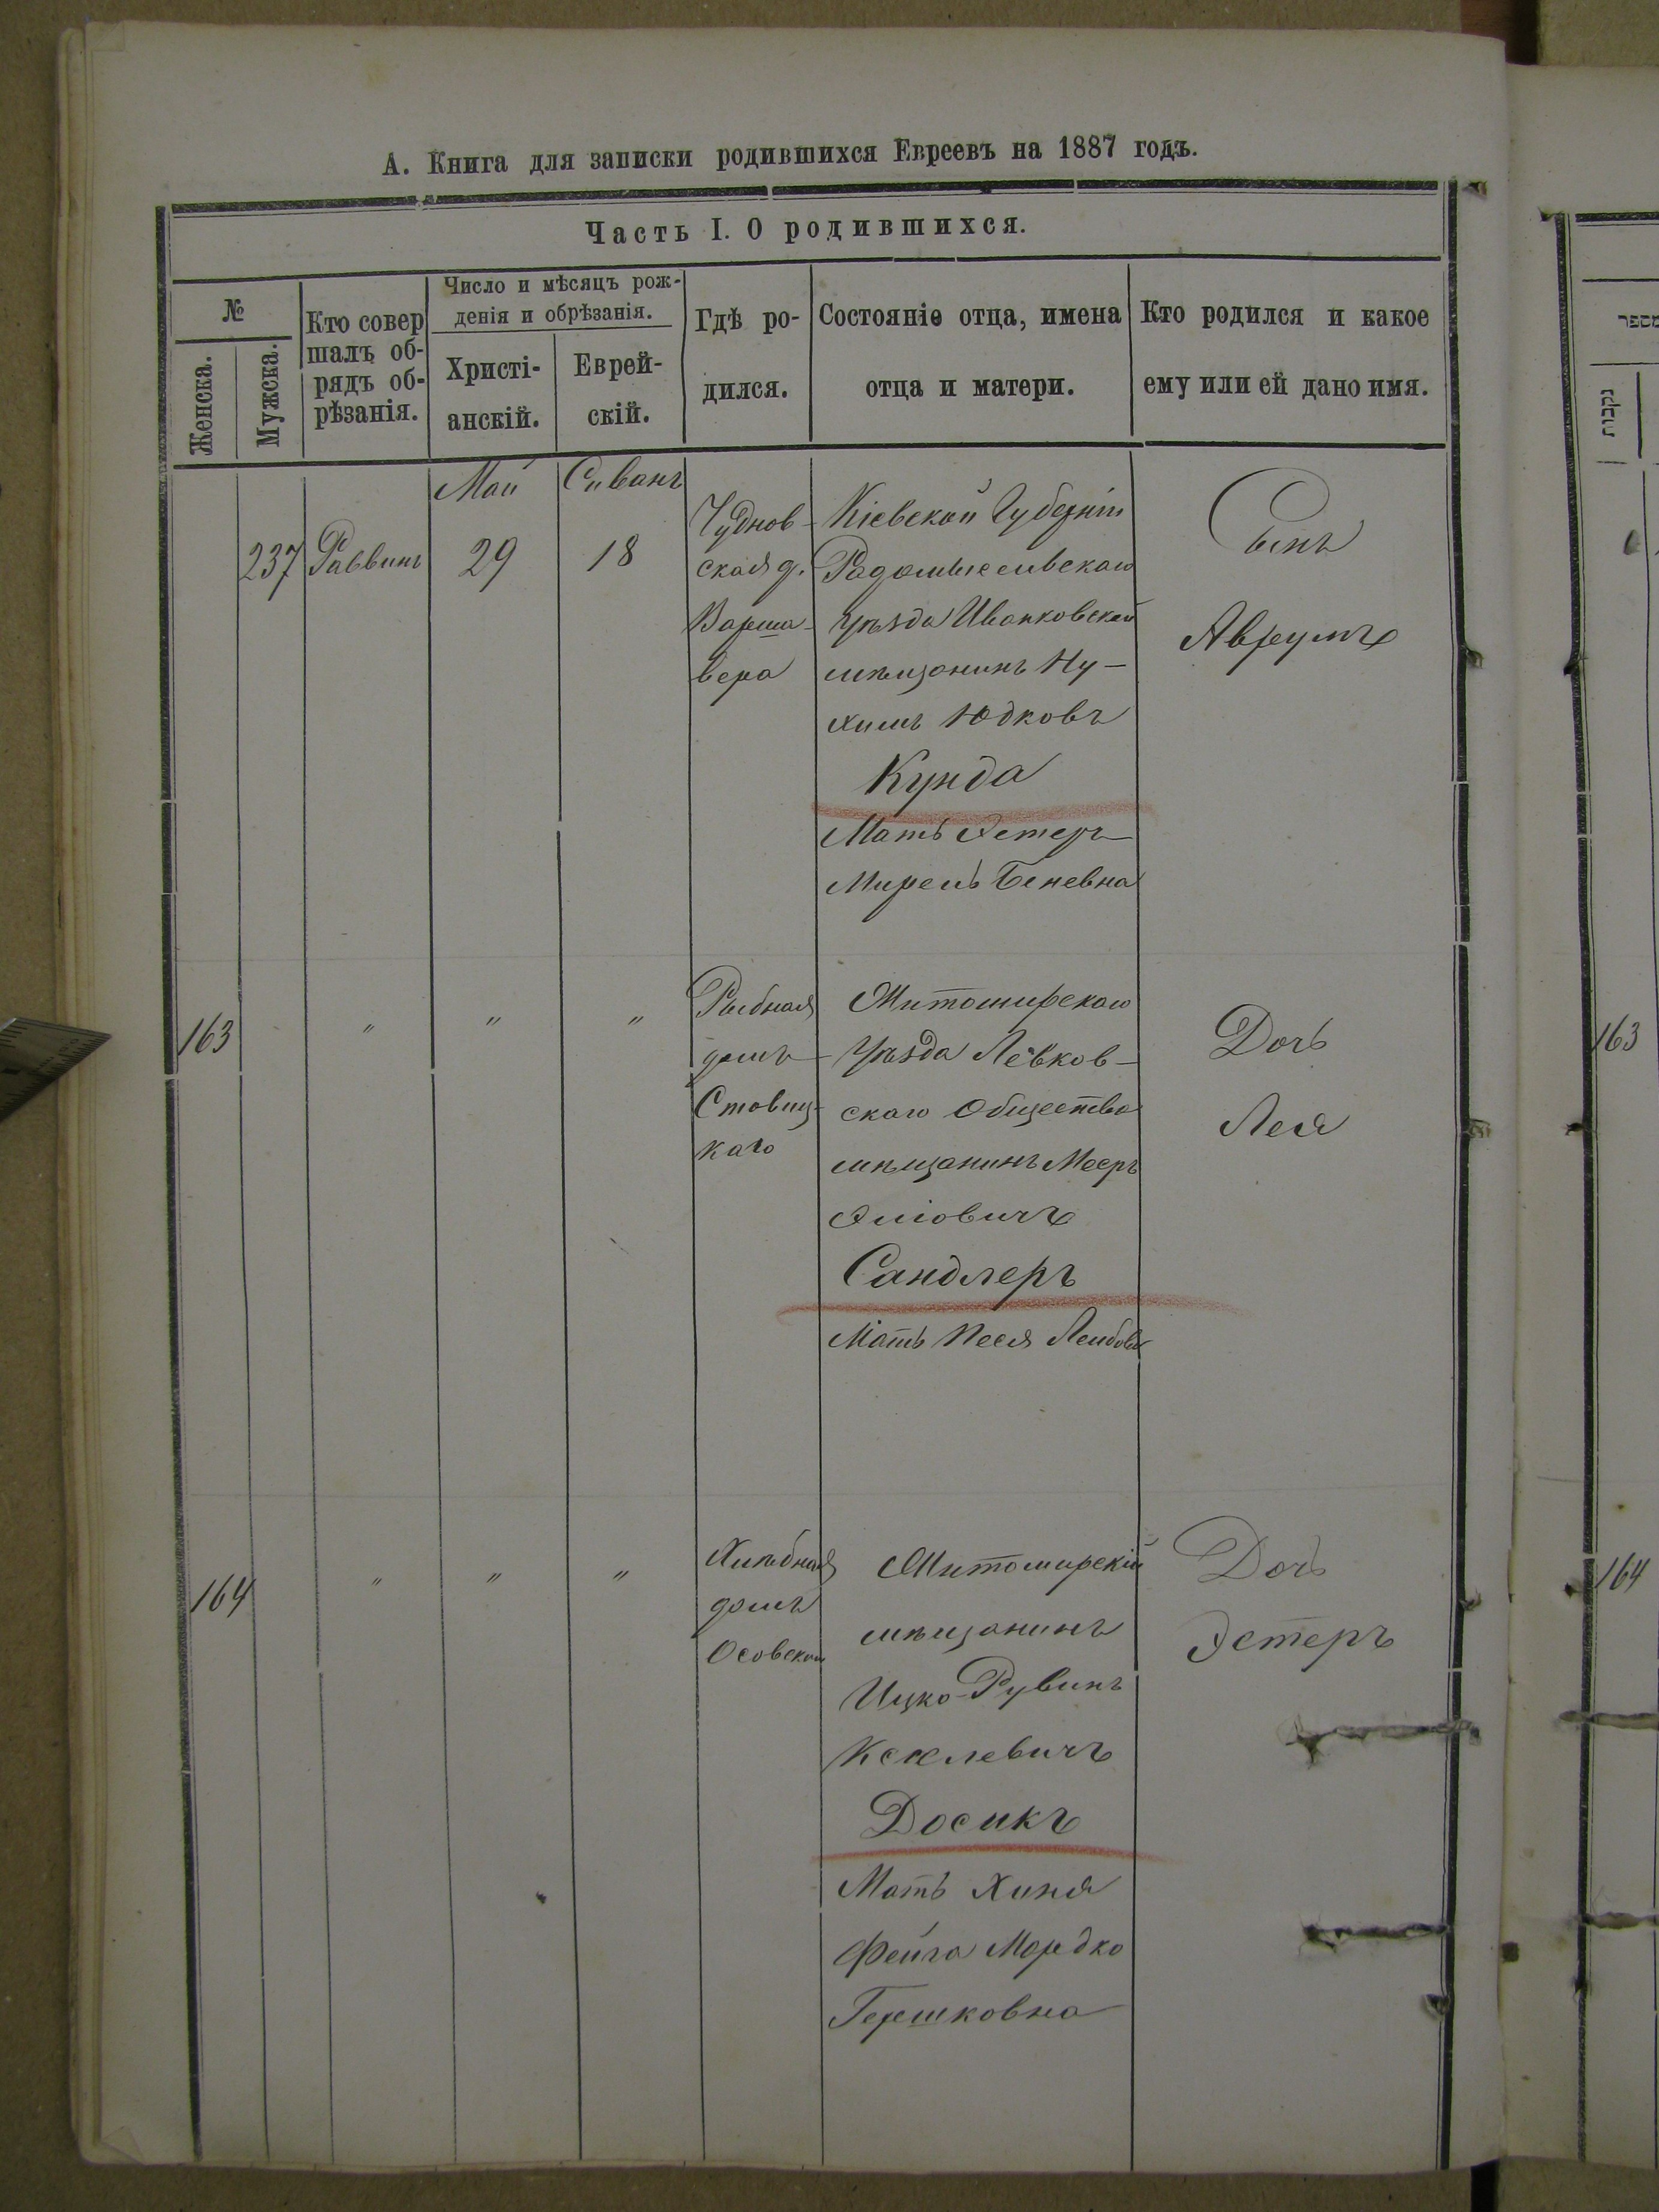 А. Книга для записки родившихся Евреевъ на 1887 годъ.
Часть I. О родившихся.
№
Женска.
Мужска.
Кто совер
шалъ об-
рядъ об-
рѣзанія.
Число и мѣсяцъ рож-
денія и обрѣзанія.
Христі-
анскій.
Еврей-
скій.
Гдѣ ро-
дился.
Состояніе отца, имена
отца и матери.
Кто родился и какое
ему или ей дано имя.
מספר
נקבות
Май
Сиванъ
237
Раввинъ
29
18
Чуднов-
ская д.
Варша-
вера
Кіевской Губерніи
Радомысельскаго
Уѣзда Иванковской
мѣщанинъ Ну-
химъ Юдковъ
Кунда
Мать Эстеръ
Мирель Беневна
Сынъ
Аврумъ
163
"
"
"
Рыбная
домъ
Ставиц-
каго
Житомирскаго
Уѣзда Левков-
скаго Общества
мѣщанинъ Мееръ
Эліовичъ
Сандлеръ
Мать Песя Лейбова
Дочь
Лея
163
164
"
"
"
Хлѣбная
домъ
Осовской
Житомирскій
мѣщанинъ
Ицко-Рувинъ
Кселевичъ
Досикъ
Мать Хиня
Фейга Мордко
Гершковна
Дочь
Эстеръ
164